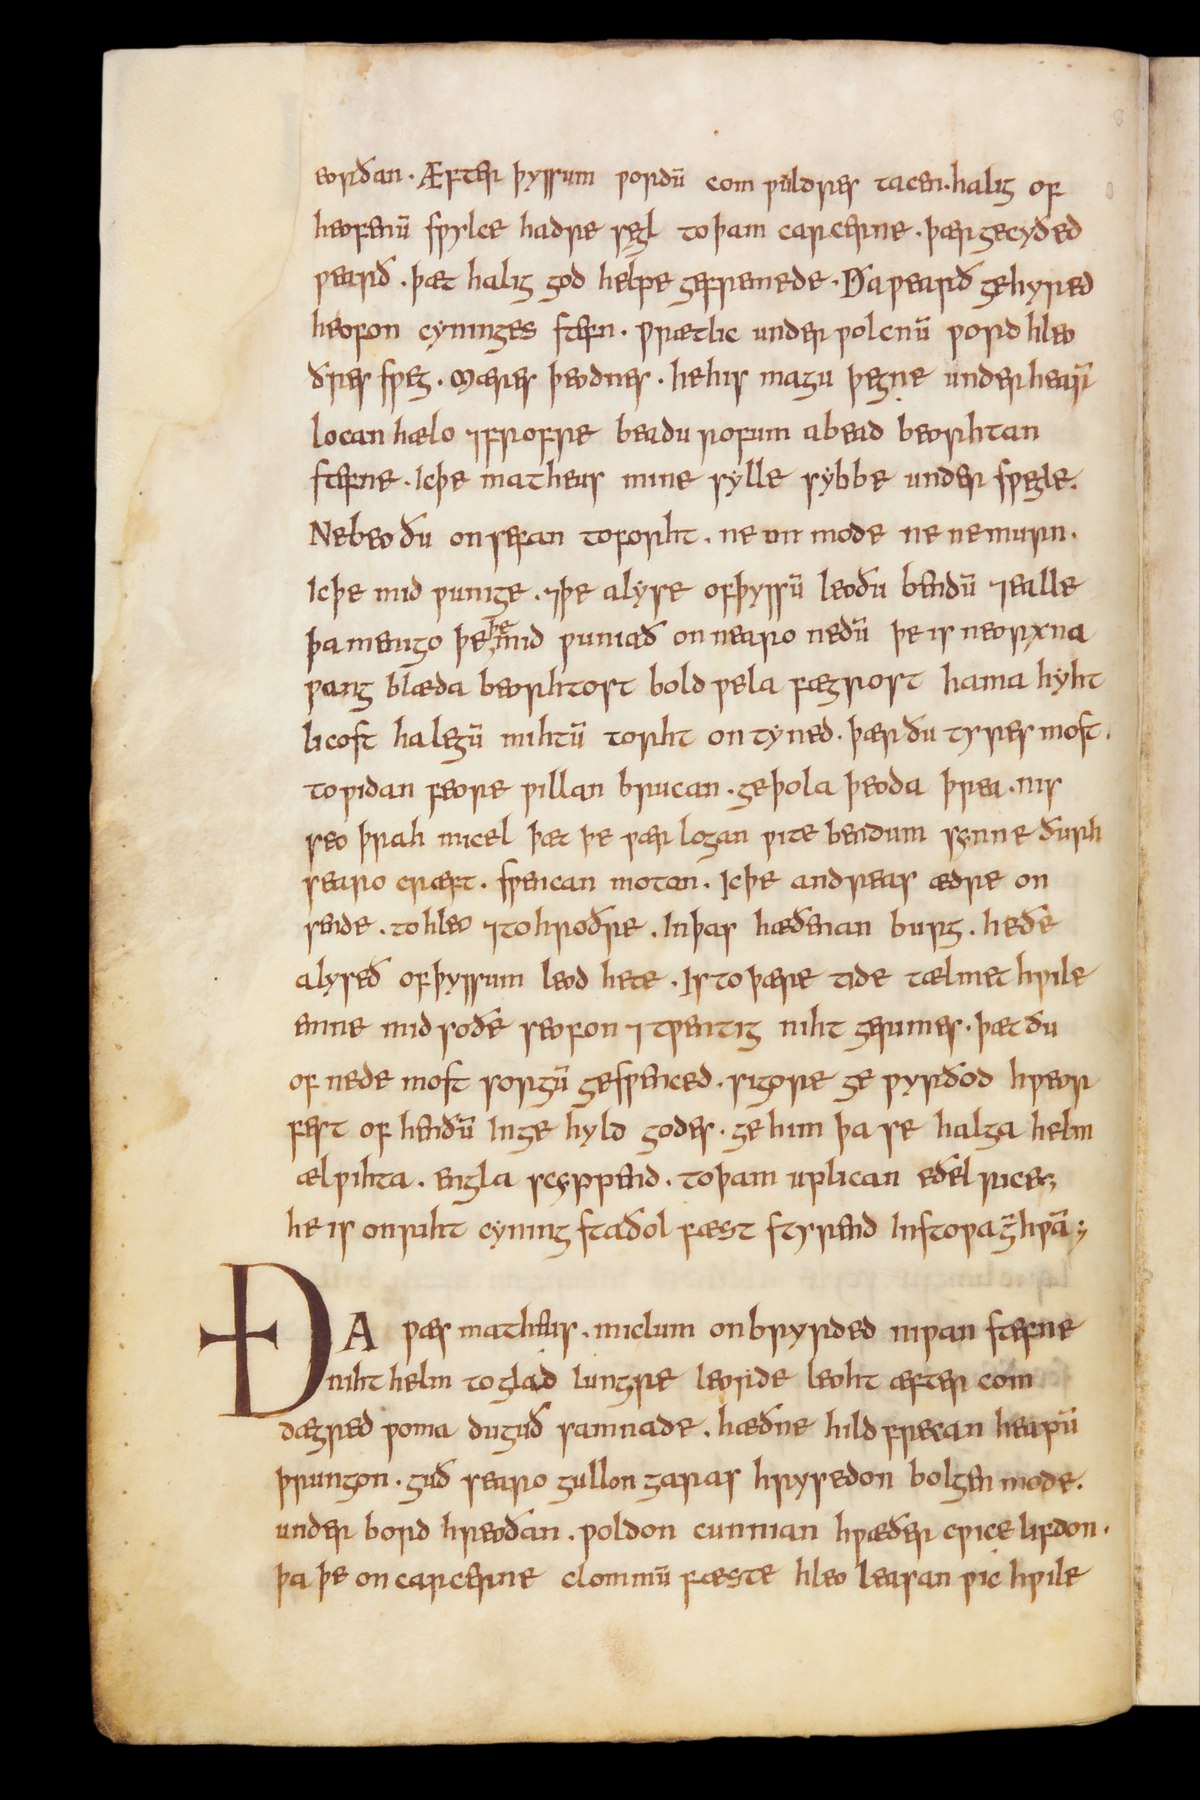 eorðan · Æfter þyssum ƿordū com ƿuldres tacen · halig of
heofenū sƿylce hadre segl to þam carcerne · þær gecyðed
ƿearð · þæt halig god helpe gefremede · Ða ƿearð gehyred
heofon cyninges stefn · ƿrætlic under ƿolcnū ƿord hleo
ðres sƿeg · mæres þeodnes · he his magu þegne under hearm
locan hælo ⁊ frofre beadu rofum abead beorhtan
stefne · Ic þe matheus mine sylle sybbe under sƿegle.
Ne beo ðu on sefan to forht · ne on mode ne ne murn ·
Ic þe mid ƿunige · ⁊ þe alyse of þyssū leoðu bendū ⁊ ealle
þa menigo þe þe mid ƿuniað on nearo nedū þe is neorxna
ƿang blæda beorhtost bold ƿela fægrost hama hyht
licost halegū mihtū torht ontyned · þær ðu tyres most ·
to ƿidan feore ƿillan brucan · geþola þeoda þrea · nis
seo þrah micel þæt þe ƿær logan ƿite bendum synne ðurh
searo cræft · sƿencan motan · Ic þe andreas ædre on
sende · to hleo ⁊ to hroðre · In þas hæðenan burg · he ðe
alyseð of þyssum leod hete · Is to þære tide tælmet hƿile
emne mid soðe seofon ⁊ tƿentig niht gerimes · þæt ðu
of nede most sorgū gesƿenced · sigore geƿyrðod hƿeor
fest of henðū In gehyld godes · geƿat him þa se halga helm
ælƿihta · engla scyppend · to þam uplican eðel rices;
he is on riht cyning staðol fæst styrend In stoƿa gehƿā ;
ÐA ƿæs matheus · miclum onbryrded niƿan stefne
niht helm toglad lungre leorde leoht æfter com
dægred ƿoma duguð samnade · hæðne hild frecan heapū
þrungon · guð searo gullon garas hrysedon bolgen mode.
under bord hreoðan · ƿoldon cunnian hƿæðer cƿice lifdon ·
þa þe on carcerne clommū fæste hleo leasan ƿic hƿile